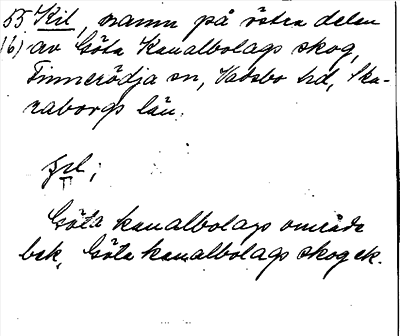 55 Kil, namn på östra delen
(6) av Göta Kanalbolags skog,
Finnerödja sn, Vadsbo hd, Ska-
raborgs län.
Göta kanalbolags område
bek. Göta kanalbolags skog ek.